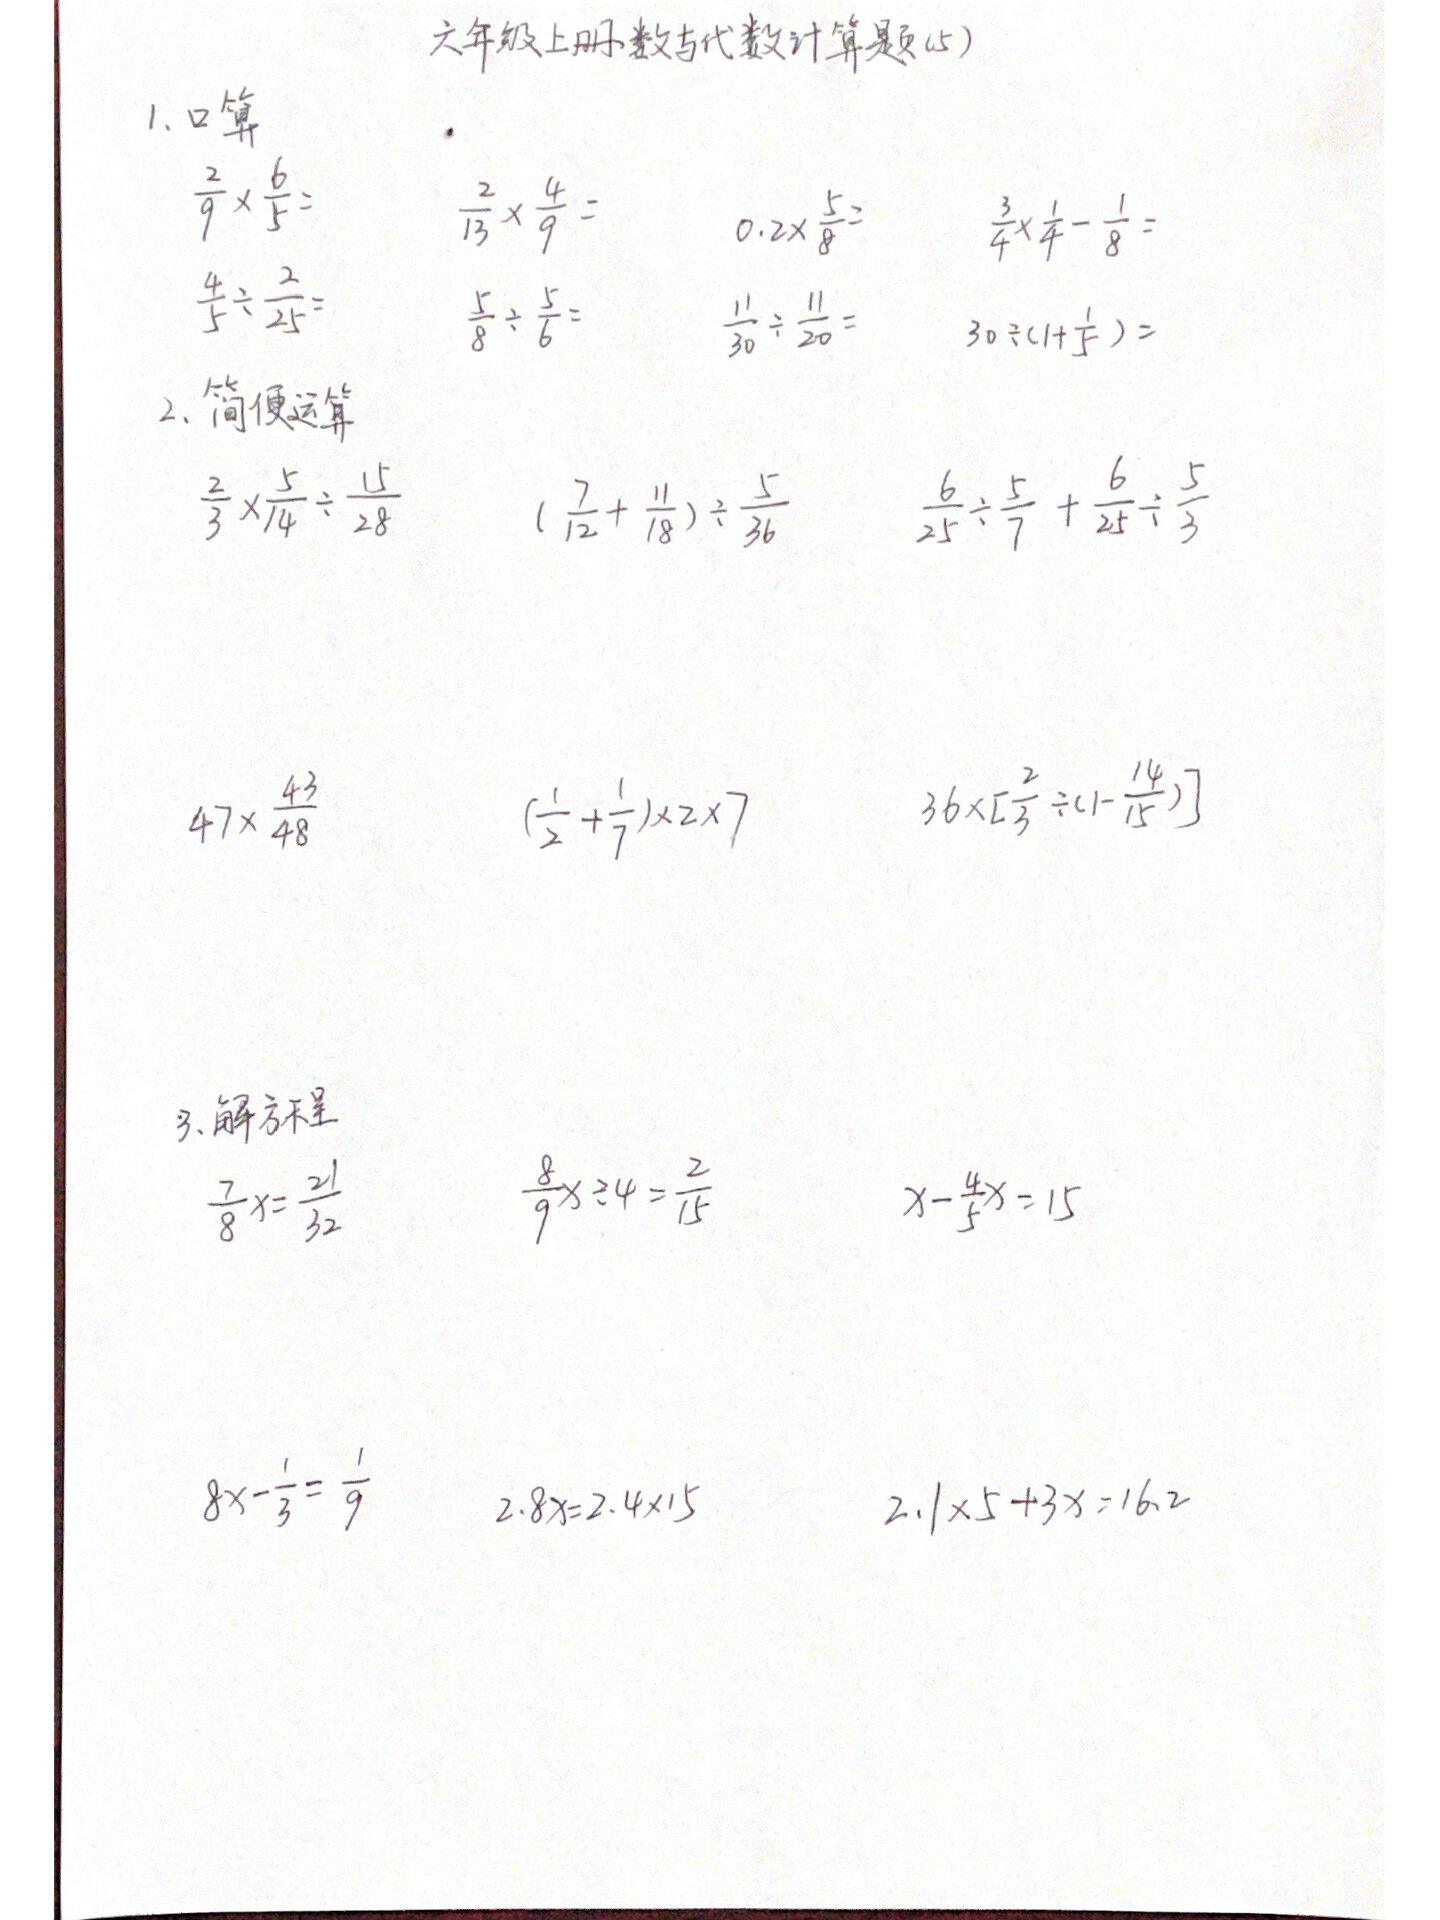 六年级上册数与代数计算题(5)
1、口算
2/9×6/5= 2/13×4/9= 0.2×5/8= 3/4×1/4-1/8=
4/5÷2/25= 5/8÷5/6= 11/30÷11/20= 30÷(1+1/5)=
2、简便运算
2/3×5/14÷15/28 (7/12+11/18)÷5/36 6/25÷5/7+6/25÷5/3
47×43/48 (1/2+1/7)×2×7 36×[2/3÷(1-14/15)]
3、解方程
7/8x=21/32 8/9x÷4=2/15 x-4/5x=15
8x-1/3=1/9 2.8x=2.4×15 2.1×5+3x=16.2